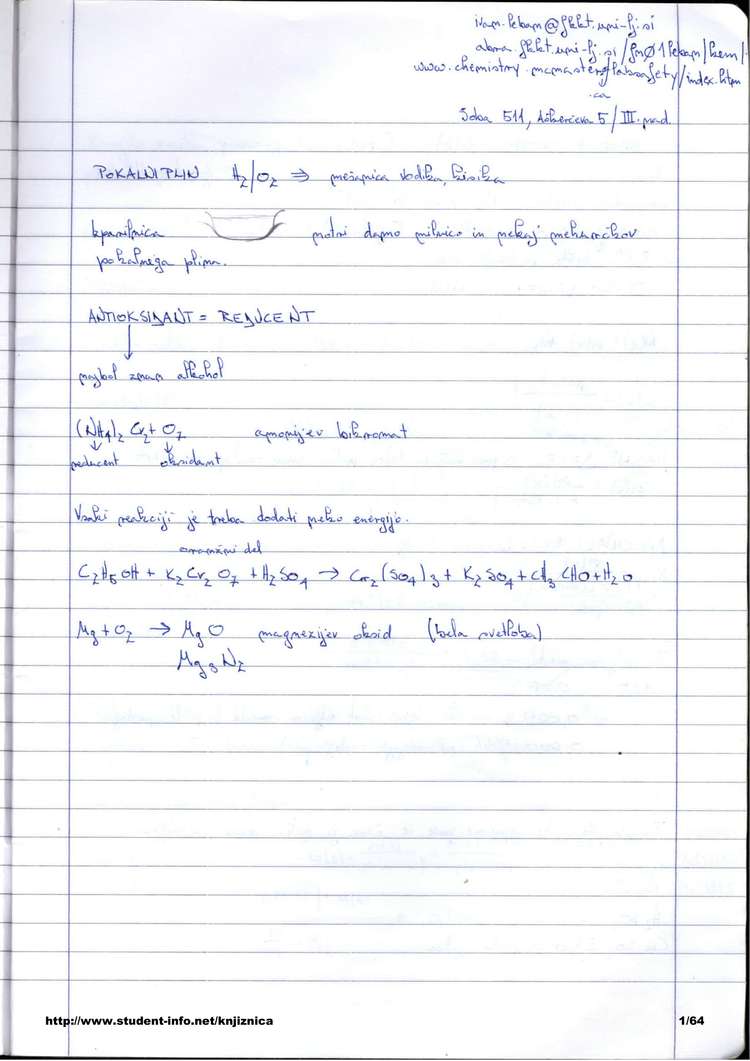 ivan.leban@fkkt.uni-lj.si
abra.fkkt.uni-lj.si/fn01leban/kem/
www.chemistry.mcmaster/labsafety/index.htm
.ca
Soba 511, Aškerčeva 5/III. nad.
POKALNI PLIN H2/O2 ⇒ mešanica vodika, kisika
notri damo milnico in nekaj mehurčkov
pokalnega plina.
ANTIOKSIDANT = REDUCENT
najbol znan alkohol
(NH4)2 Cr2+ O7 amonijev bikromat
reducent oksidant
Vsaki reakciji je treba dodati neko energijo.
oranžni del
C2H5OH + K2Cr2O7 + H2SO4 → Cr2(SO4)3 + K2SO4 + CH3CHO + H2O
Mg + O2 → MgO magnezijev oksid (bela svetloba)
Mg3N2
http://www.student-info.net/knjiznica 1/64